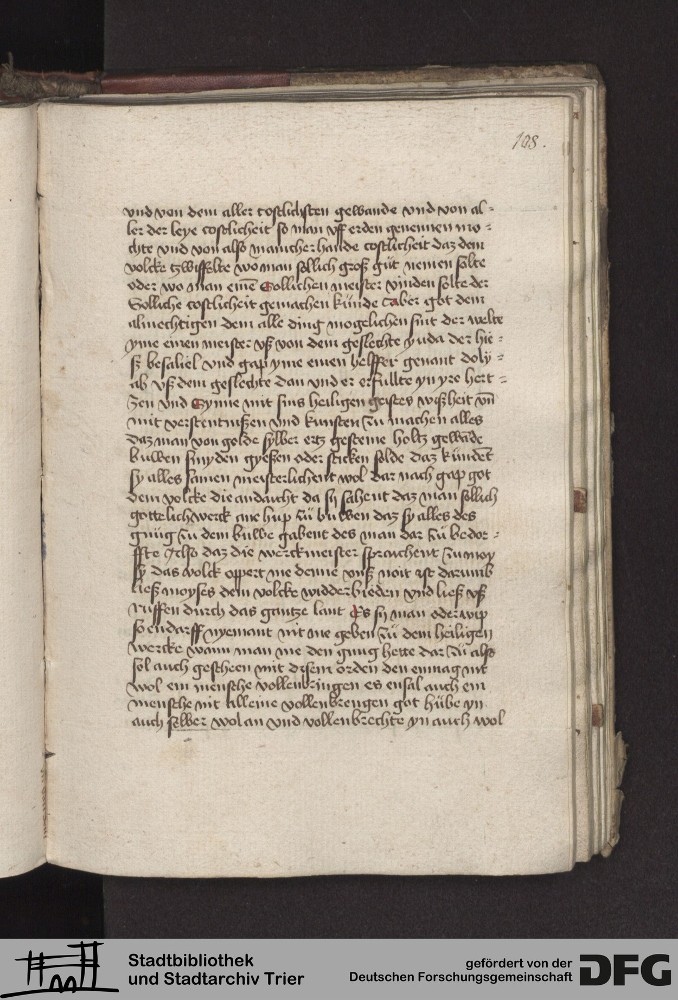 108.
vnd von dem aller costlichsten gewande vnd von al=
ler der leye costlicheit so man vff erden genemen mo=
chte vnd von also mancher hande costlicheit daz dem
volcke tzwiffelte wo man sollich groß gut nemen solte
oder wo man einē Sollichen meister vinden solte der
Solliche costlicheit gemachen kunde aber got dem
almechtigen dem alle ding mogelichen sint der welte
yme einen meister vß von dem geslechte yuda der hie=
ß besaliel vnd gap yme einen helffer genant doly=
ab vß dem geslechte dan vnd er erfullte yn yre hert=
zen vnd Synne mit sins heiligen geistes wißheit vn̄
mit verstentnißen vnd kunsten zu machen alles
daz man von golde sylber ertz gesteine holtz gewāde
buwen snyden gyeßen oder sticken solde daz kundēt
sy alles samen meisterlichent wol dar nach gap got
dem volcke die andacht da sy sahent daz man sollich
gottelich werck ane hup zu buwen daz sy alles des
gnug zu dem buwe gabent des man dar zu bedor=
ffte Also daz die werckmeister sprachent zu moy
sy das volck oppert me denne vnß noit ist darumb
ließ moyses dem volcke widder bieden vnd ließ vß
ruffen durch das gantze lant Es sy man oder wip
so endarff nyemant nit me geben zu dem heiligen
wercke wann man me den gnug hette dar zu alß
sol auch gescheen mit disem orden den enmag nit
wol ein mensche vollenbringen es ensal auch ein
mensche nit alleine vollenbrengen got hube yn
auch selber wol an vnd vollenbrechte yn auch wol
Stadtbibliothek
und Stadtarchiv Trier
gefördert von der
Deutschen Forschungsgemeinschaft
DFG